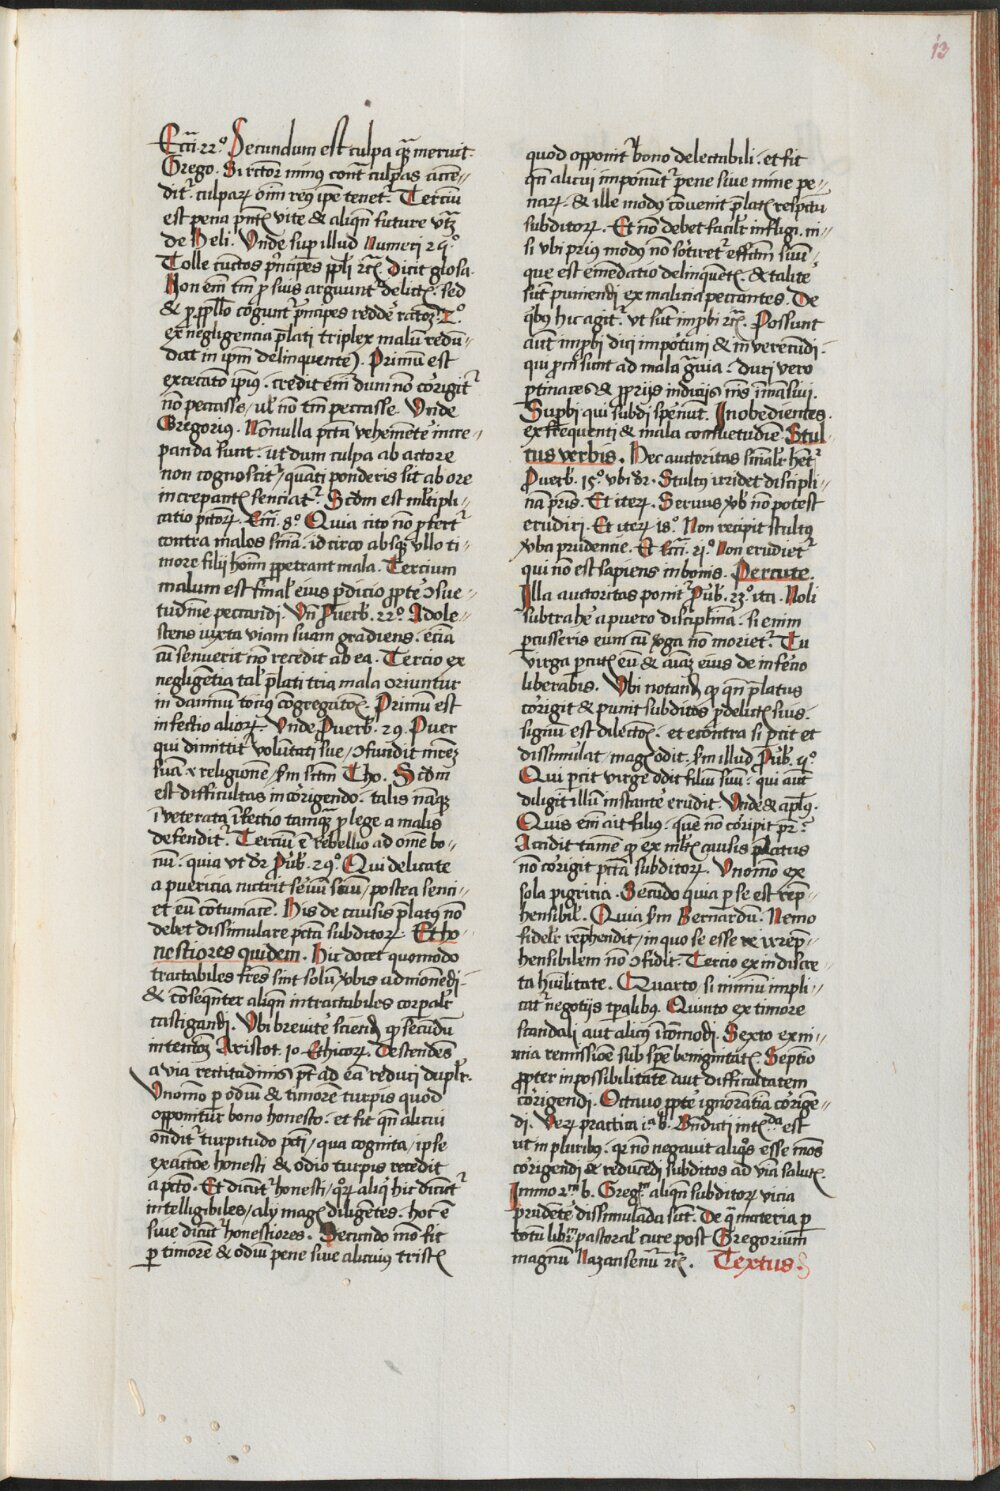 13
Eccī. 22.° Secundum est culpa quā meruit.
Grego. Si rector minus contra culpas acce-
dit. culparū omniū reus ipse tenet. Terciū
est pena pntis vite & aliqn future vt
de Heli. Unde super illud Numeri 24.°
Tolle cunctos principes ppli rc. Dicit glosa.
Non em tm p suis arguunt delictis. sed
& p pplo cogunt principes reddere
ex negligencia plati triplex malū redū-
dat in ipm delinquentē. Primū est
excecatio ipius. credit em dum nō corrigit
nō peccasse, vl nō tm peccasse. Unde
Gregorius. Nonnulla pctā vehementer incre-
panda sunt. ut dum culpa ab actore
non cognoscit, quāti ponderis sit ab ore
increpantis senciat. Scdm est multipli-
catio pctorū. Eccī. 8.° Quia cito nō profert
contra malos snia. idcirco absqz vllo ti-
more filij hoīm ppetrant mala. Tercium
malum est final eius pdicio ppter ꝯsue-
tudinē peccandi. Vn Puerb. 22.° Adole-
scens iuxta viam suam gradiens. eciā
cū senuerit nō recedit ab ea. Tercio ex
negligentia tal plati tria mala oriuntur
in damnū tocius cōgregatōis. Primū est
infectio aliorū. Unde Puerb. 29. Puer
qui dimittit voluntati sue, ꝯfundit mrem
suā .i. religionē, scdm sctm Tho. Scdm
est difficultas in corrigendo. talis nāqz
inveterata infectio tanqz p lege a malis
defendit. Terciū ē rebellio ad omē bo-
nū. quia ut dr Pub. 29.° Qui delicate
a puericia nutrit seruū suū, postea senci-
et eū cōtumacē. His de causis platus nō
debet dissimulare pctā subditorū. Et ho-
nestiores quidem. Hic docet quomodo
tractabiles fres sint solū verbis admonēdi.
& cōsequenter aliqn intractabiles corpalr
castigandi. Ubi breuiter sciend q secundū
intentōem Aristot. 10 Ethicorū. Descendēs
a via rectitudinis pt ad eā reduci duplr.
Uno mo p odiū & timorē turpis quod
opponitur bono honesto. et fit qn alicui
ondit turpitudo pcti, qua cognita, ipse
ex amore honesti & odio turpis recedit
a pcto. Et dicunt honesti, qrū aliq hic dicunt
intelligibiles, alij magis diligentes. hoc ē
siue dicunt honestiores. Secundo mo fit
p timorē & odiū pene siue alicuius tristis
quod opponit bono delectabili. et fit
qn alicui imponunt pene siue mine pe-
narū. & ille modus cōuenit platis respctu
subditorū. Et nō debet facilr infligi. ni-
si vbi prius modus nō sortiret effctm suū
que est emēdatio delinquētis. & taliter
sūt puniendi ex malicia peccantes. De
qbus hic agit. vt sūt improbi rc. Possunt
aut improbi dici importuni & inverecūdi.
qui proni sunt ad mala grauia. duri vero
ptinaces & proprijs indicijs nimis immansiui.
Supbi qui subdi spernūt. Inobedientes.
ex frequenti & mala consuetudine. Stul-
tus verbis. Hec auctoritas similr hēt
Puerb. 15.° vbi dr. Stultus irridet discipli-
nā pris. Et iterū. Seruus vb nō potest
erudiri. Et iterū 18.° Non recipit stultus
vba prudencie. Et Eccī. 21.° Non erudiet
qui nō est sapiens in bonis. Percute.
Illa auctoritas ponit Pub. 23.° ita. Noli
subtrahere a puero disciplinā. si enim
pcusseris eum cū virga nō moriet. Tu
virga pcutis eū & aīam eius de inferno
liberabis. Ubi notand q qn platus
corrigit & punit subditos p delictis suis.
signū est dilectōis. et econtra si pcit et
dissimulat magis odit. scdm illud Pub. 13.°
Qui pcit virge odit filiū suū. qui aut
diligit illū instanter erudit. Unde & aplus.
Quis em ait filius. quē nō corripit pr.
Accidit tamē q ex multis causis platus
nō corrigit pctā subditorū. Uno mo ex
sola pigricia. Secundo quia p se est repre-
hensibil. Quia scdm Bernardū. Nemo
fidelr reprehendit, in quo se esse irrepre-
hensibilem nō ꝯfidit. Tercio ex indiscre-
ta hūilitate. Quarto, si nimiū impli-
cat negotijs tpalibus. Quinto ex timore
scandali aut alicuius incōmodi. Sexto ex ni-
mia remissiōe sub spe benignitatis. Septīo
ppter inpossibilitatē aut difficultatem
corrigendi. Octauo ppter ignorantiā corrigē-
di. Verū practica est
ut in pluribus. qr nō negauit aliqs esse mōs
corrigendi & reducēdi subditos ad viā salutis.
Immo b. Greg. aliqn subditorū vicia
prudēter dissimulāda sūt. De q materia p
totū librū pastoral cure post Gregorium
magnū Nazansenū rc. Textus.